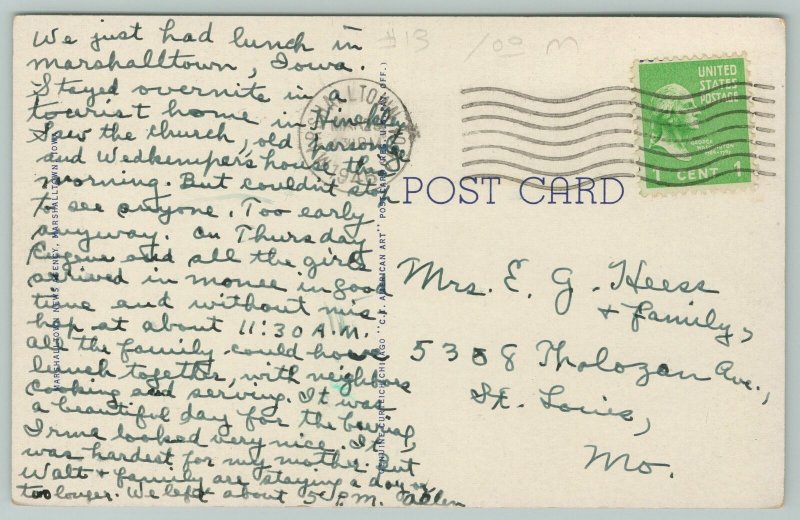 We just had lunch in
marshalltown, Iowa.
Stayed overnite in a
tourist home in Hinckley
Saw the church, old parsonage
and Wedkemper's house the
morning. But couldn't stop
to see anyone. Too early
anyway. On Thursday
Eugene and all the girls
arrived in monee in good
time and without mis
hap at about 11:30 A.M.
all the family could have
lunch together, with neighbors
cooking and serving. It was
a beautiful day for the burial,
Irma looked very nice. It
was hardest for my mother. But
Walt + family are staying a day or
too longer. We left about 5 P.M.
MARSHALLTOWN NEWS AGENCY, MARSHALLTOWN, IOWA
GENUINE CURTEICH-CHICAGO "C.T. AMERICAN ART" POST CARD (REG. U.S. PAT. OFF.)
#13 100 M
MARSHALLTOWN
MAR
1939
IOWA
UNITED
STATES
POSTAGE
GEORGE
WASHINGTON
1 CENT 1
POST CARD
Mrs. E. G. Heess
+ family,
5358 Tholozan Ave.,
St. Louis,
Mo.